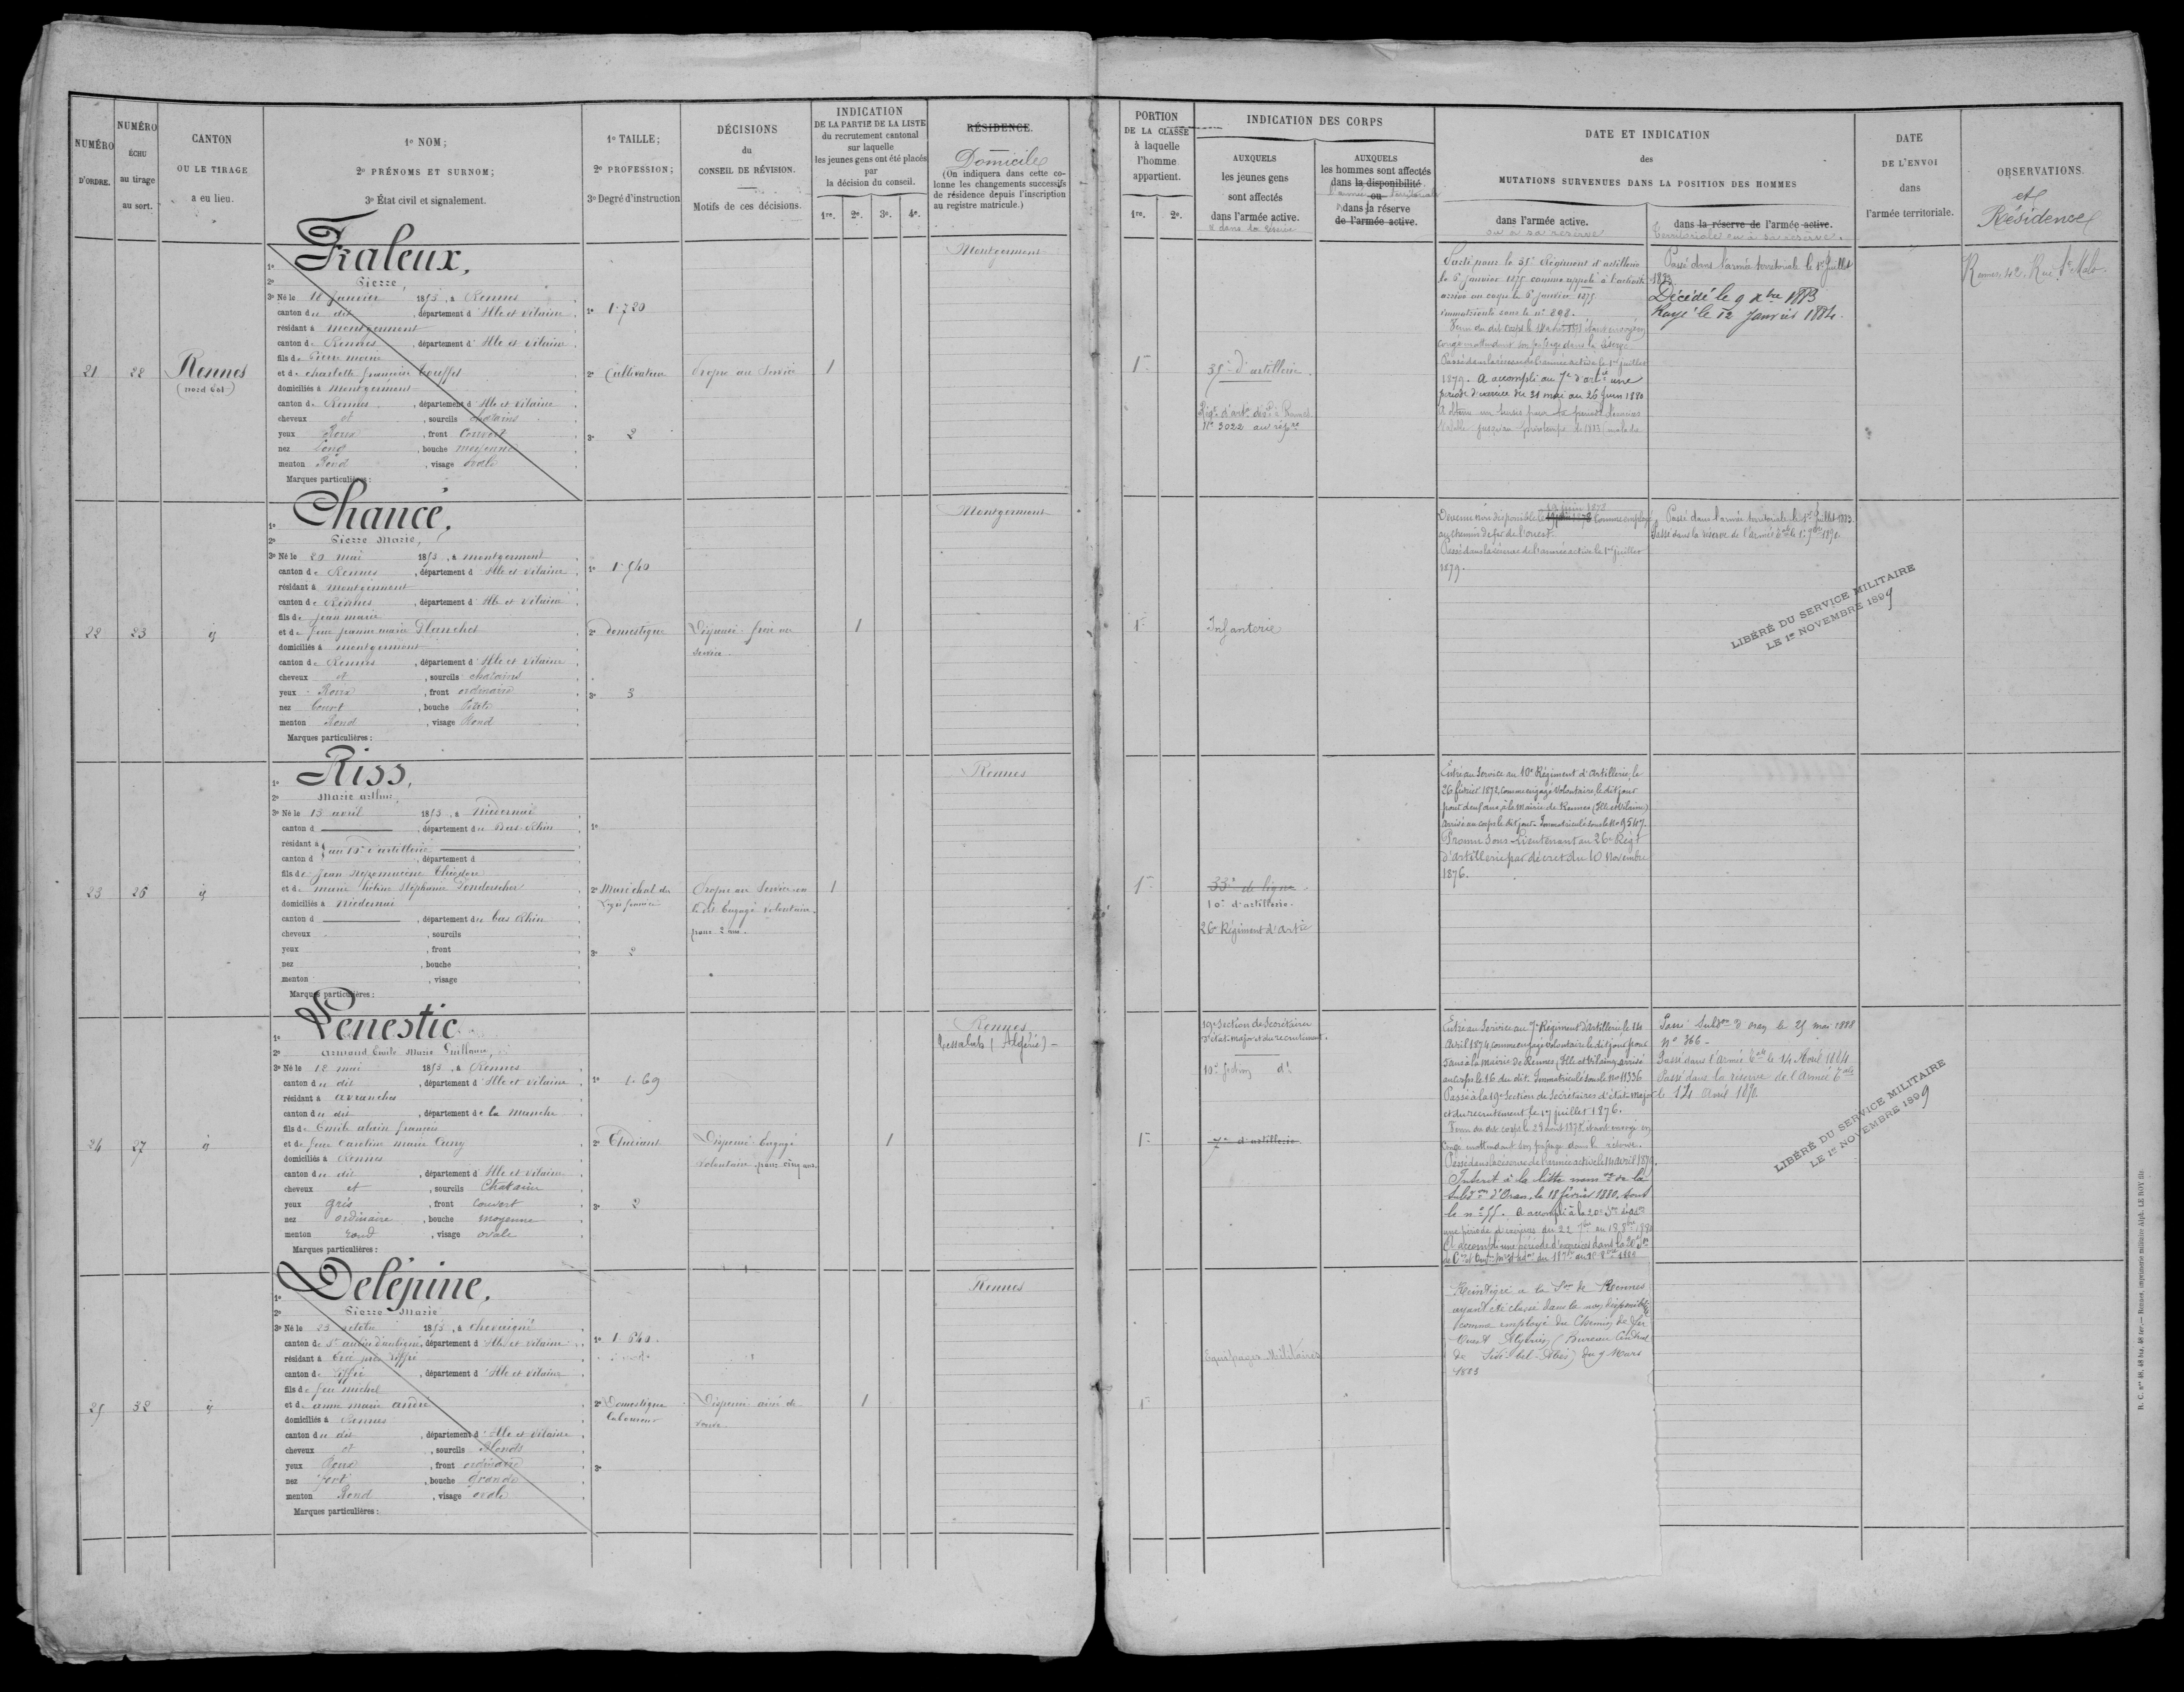 NUMÉRO
D'ORDRE.
NUMÉRO
ÉCHU
au tirage
au sort.
CANTON
OU LE TIRAGE
a eu lieu.
1º NOM;
2º PRÉNOMS ET SURNOM;
3º État civil et signalement.
1º TAILLE;
2º PROFESSION;
3º Degré d'instruction
DÉCISIONS
du
CONSEIL DE RÉVISION.
Motifs de ces décisions.
INDICATION
DE LA PARTIE DE LA LISTE
du recrutement cantonal
sur laquelle
les jeunes gens ont été placés
par
la décision du conseil.
1re. 2e. 3e. 4e.
RÉSIDENCE.
Domicile
(On indiquera dans cette co-
lonne les changements successifs
de résidence depuis l'inscription
au registre matricule.)
PORTION
DE LA CLASSE
à laquelle
l'homme
appartient.
1re. 2e.
INDICATION DES CORPS
AUXQUELS
les jeunes gens
sont affectés
dans l'armée active.
& dans la réserve
AUXQUELS
les hommes sont affectés
dans la disponibilité
l'armée territoriale
ou
dans la réserve
de l'armée active.
DATE ET INDICATION
des
MUTATIONS SURVENUES DANS LA POSITION DES HOMMES
dans l'armée active.
ou à sa réserve
dans la réserve de l'armée active.
territoriale ou à sa réserve.
DATE
DE L'ENVOI
dans
l'armée territoriale.
OBSERVATIONS.
et
Résidence
21
22
Rennes
(nord Est)
1º Fraleux,
2º Pierre,
3º Né le 18 Janvier 1853, à Rennes
canton du dit, département d'Ille et Vilaine
résidant à Montgermont
canton de Rennes, département d'Ille et Vilaine
fils de Pierre marie
et de charlotte françoise Bouffet
domiciliés à Montgermont
canton de Rennes, département d'Ille et Vilaine
cheveux et, sourcils chatains
yeux Roux, front Couvert
nez Long, bouche moyenne
menton Rond, visage ovale
Marques particulières:
1º 1.720
2º Cultivateur
3º 2
Propre au Service
1
Montgermont
1re
35e d'artillerie
Nº 3022 au rép.re
Parti pour le 35e Régiment d'artillerie
le 6 Janvier 1875 comme appelé à l'activité
arrivé au corps le 6 Janvier 1875
immatriculé sous le nº 898.
congé en attendant son passage dans la réserve
Passé dans la réserve de l'armée active le 1er juillet
1879. A accompli au 7e d'art.ie une
période d'exercice du 31 mai au 26 Juin 1880
Passé dans l'armée territoriale le 1er Juillet
1883
Décédé le 9 xbre 1883
Rayé le 12 Janvier 1884.
Rennes, 42, Rue St Malo.
22
23
id
1º Chancé,
2º Pierre Marie,
3º Né le 20 mai 1853, à Montgermont
canton de Rennes, département d'Ille et Vilaine
résidant à Montgermont
canton de Rennes, département d'Ille et Vilaine
fils de Jean marie
et de feue Jeanne marie Blanchet
domiciliés à Montgermont
canton de Rennes, département d'Ille et Vilaine
cheveux et, sourcils chatains
yeux Roux, front ordinaire
nez Court, bouche Petite
menton Rond, visage Rond
Marques particulières:
1º 1.540
2º Domestique
3º 3
Dispensé frère au
service.
1
Montgermont
1re
Infanterie
19 juin 1878
Devenu non disponible le comme employé
au chemin de fer de l'ouest.
Passé dans la réserve de l'armée active le 1er juillet
1879.
Passé dans l'armée territoriale le 1er Juillet 1883.
Passé dans la réserve de l'armée t.ale le 1er 9bre 1890.
LIBÉRÉ DU SERVICE MILITAIRE
LE 1er NOVEMBRE 1899
23
26
id
1º Riss,
2º Marie arthur,
3º Né le 13 avril 1853, à Niedernai
canton d, département du Bas-Rhin
résidant à au 10e d'artillerie
canton d, département d
fils de Jean Népomucène Théodore
et de marie hélène Stéphanie
domiciliés à Niedernai
canton d, département du bas Rhin
cheveux, sourcils
yeux, front
nez, bouche
menton, visage
Marques particulières:
1º
2º Maréchal des
Logis fourrier
3º 2
Propre au Service
le dit Engagé volontaire
pour 2 ans.
1
Rennes
1re
33e de ligne
10e d'artillerie.
26e Régiment d'artie
Entré au Service au 10e Régiment d'Artillerie, le
26 février 1872, comme engagé Volontaire, le dit jour
pour deux ans, à la mairie de Rennes (Ille et Vilaine)
Arrivé au corps le dit jour. Immatriculé sous le Nº 9547.
Promu Sous-Lieutenant au 26e Régt
d'artillerie par décret du 10 Novembre
1876.
24
27
id
1º Penestic
2º armand Emile Marie Guillaume,
3º Né le 18 mai 1853, à Rennes
canton du dit, département d'Ille et Vilaine
résidant à avranches
canton du dit, département de la Manche
fils de Emile alain françois
et de feue Caroline marie Cuny
domiciliés à Rennes
canton du dit, département d'Ille et Vilaine
cheveux et, sourcils Chatains
yeux gris, front couvert
nez ordinaire, bouche moyenne
menton rond, visage ovale
Marques particulières:
1º 1.69
2º Etudiant
3º 2
Dispensé. Engagé
volontaire pour cinq ans.
1
Rennes
Tessalah (Algérie)
1re
19e Section de Secrétaires
d'état-major et du recrutement.
7e d'artillerie
Entré au Service au 7e Régiment d'Artillerie le 14
Avril 1874, comme engagé volontaire le dit jour pour
5 ans à la mairie de Rennes, Ille et Vilaine, arrivé
au corps le 16 du dit. Immatriculé sous le Nº 11336
Passé à la 19e Section de Secrétaires d'état-major
et du recrutement le 17 juillet 1876.
congé en attendant son passage dans la réserve.
Passé dans la réserve de l'armée active le 14 avril 1879.
Inscrit à la liste nom.ve de la
Subd.on d'Oran, le 18 février 1880, sous
le nº 55. A accompli à la 20e S.on
A accompli une période d'exercices dans la 20e S.on
Passé Subd.on d'oran le 25 mai 1888
nº 366
Passé dans l'Armée t.ale le 14 Avril 1884
Passé dans la réserve de l'Armée t.ale
le 14 Avril 1890.
LIBÉRÉ DU SERVICE MILITAIRE
LE 1er NOVEMBRE 1899
25
32
id
1º Delépine,
2º Pierre Marie
3º Né le 23 octobre 1853, à chevaigné
canton de St aubin d'aubigné, département d'Ille et Vilaine
résidant à Ercé près Liffré
canton de Liffré, département d'Ille et Vilaine
fils de feu michel
et de anne marie andré
domiciliés à Rennes
canton du dit, département d'Ille et Vilaine
cheveux et, sourcils Blonds
yeux Roux, front ordinaire
nez fort, bouche grande
menton Rond, visage ovale
Marques particulières:
1º 1.640.
2º Domestique
laboureur
3º
Dispensé ainé de
veuve
1
Rennes
1re
Equipages Militaires
Réintégré à la S.on de Rennes
ayant été classé dans la non disponibilité
comme employé du Chemin de fer
Ouest Algérien (Bureau Central
de Sidi-bel-Abès) du 9 Mars
1883
R. C. nos 48, 48 bis, 48 ter.— Rennes, imprimerie militaire Alph. LE ROY fils